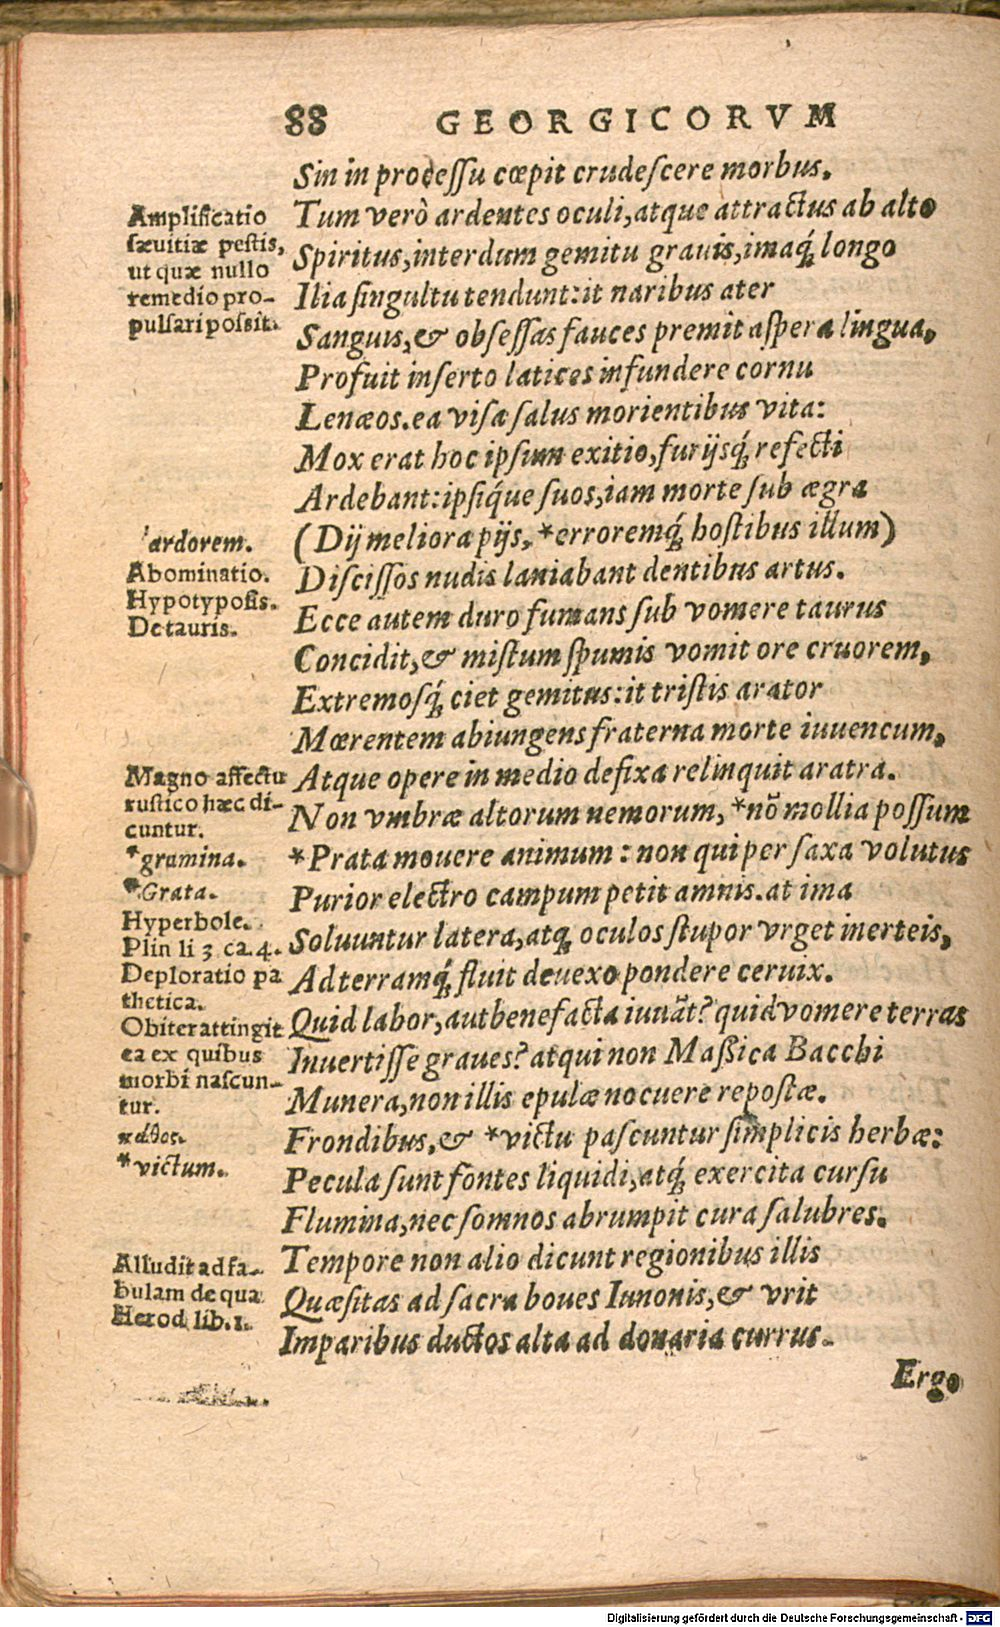 88 GEORGICORVM
Sin in processu cœpit crudescere morbus.
Tum verò ardentes oculi, atque attractus ab alto
Spiritus, interdum gemitu grauis, imaq́; longo
Ilia singultu tendunt: it naribus ater
Sanguis, & obsessas fauces premit aspera lingua,
Profuit inserto latices infundere cornu
Lenæos. ea visa salus morientibus vita:
Mox erat hoc ipsum exitio, furijsq́; refecti
Ardebant: ipsiq́ue suos, iam morte sub ægra
(Dij meliora pijs, *erroremq́; hostibus illum)
Discissos nudis laniabant dentibus artus.
Ecce autem duro fumans sub vomere taurus
Concidit, & mistum spumis vomit ore cruorem,
Extremosq́; ciet gemitus: it tristis arator
Mœrentem abiungens fraterna morte iuuencum,
Atque opere in medio defixa relinquit aratra.
Non vmbræ altorum nemorum, *nō mollia possum
*Prata mouere animum: non qui per saxa volutus
Purior electro campum petit amnis. at ima
Soluuntur latera, atq; oculos stupor vrget inerteis,
Ad terramq́; fluit deuexo pondere ceruix.
Quid labor, aut benefacta iuuāt? quid vomere terras
Inuertisse graues? atqui non Massica Bacchi
Munera, non illis epulæ nocuere repostæ.
Frondibus, & *victu pascuntur simplicis herbæ:
Pecula sunt fontes liquidi, atq́; exercita cursu
Flumina, nec somnos abrumpit cura salubres.
Tempore non alio dicunt regionibus illis
Quæsitas ad sacra boues Iunonis, & vrit
Imparibus ductos alta ad donaria currus.
Ergo
Amplificatio
sæuitiæ pestis,
ut quæ nullo
remedio pro-
pulsari possit.
ardorem.
Abominatio.
Hypotyposis.
De tauris.
Magno affectu
rustico hæc di-
cuntur.
*gramina.
*Grata.
Hyperbole.
Plin li 3 ca. 4.
Deploratio pa
thetica.
Obiter attingit
ea ex quibus
morbi nascun-
tur.
πάθος.
*victum.
Alludit ad fa-
bulam de qua
Herod lib. 1.
Digitalisierung gefördert durch die Deutsche Forschungsgemeinschaft - DFG